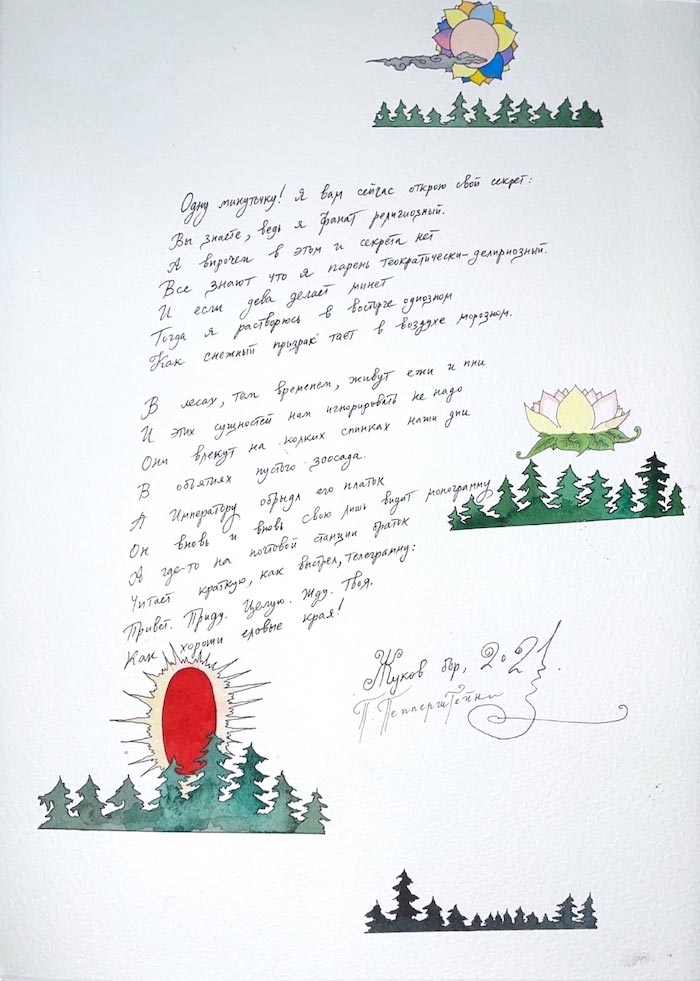 Одну минуточку! Я вам сейчас открою свой секрет:
Вы знаете, ведь я фанат религиозный.
А впрочем в этом и секрета нет
Все знают что я парень теократически-делириозный.
И если дева делает минет
Тогда я растворюсь в восторге одиозном
Как снежный призрак тает в воздухе морозном.
В лесах, тем временем, живут ежи и пни
И этих сущностей нам игнорировать не надо
Они влекут на колких спинках наши дни
В объятиях пустого зоосада.
А Императору обрыдл его платок
Он вновь и вновь свою лишь видит монограмму
А где-то на почтовой станции браток
Читает краткую, как выстрел, телеграмму:
Привет. Приду. Целую. Жду. Твоя.
Как хороши еловые края!
Жуков бор, 2021.
П. Пепперштейн